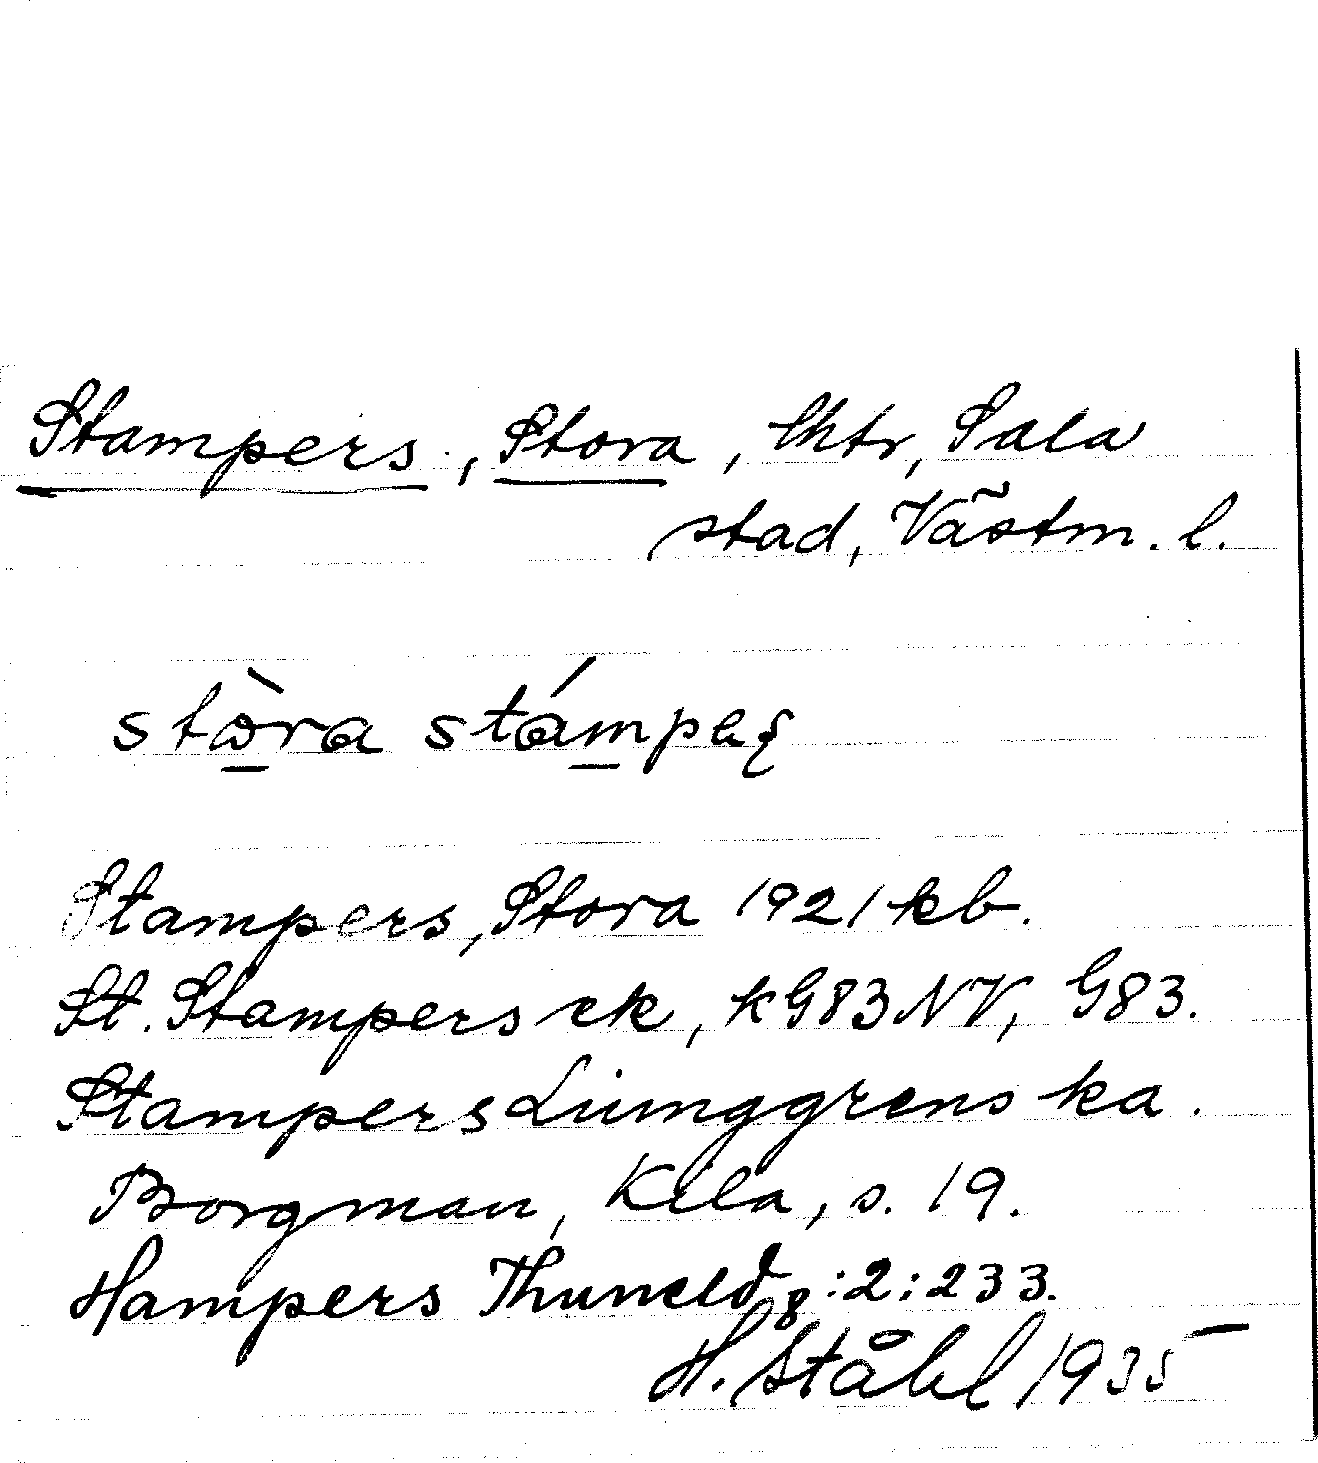 Stampers, Stora, thtr, Sala
stad, Västm. l.
stòra stámpeʂ
Stampers, Stora 1921 kb.
St. Stampers ek, KG83NV, G83.
Stampers Liunggrens ka.
Borgman, Kila, s. 19.
Hampers Thuneld 8:2:233.
H. Ståhl 1935